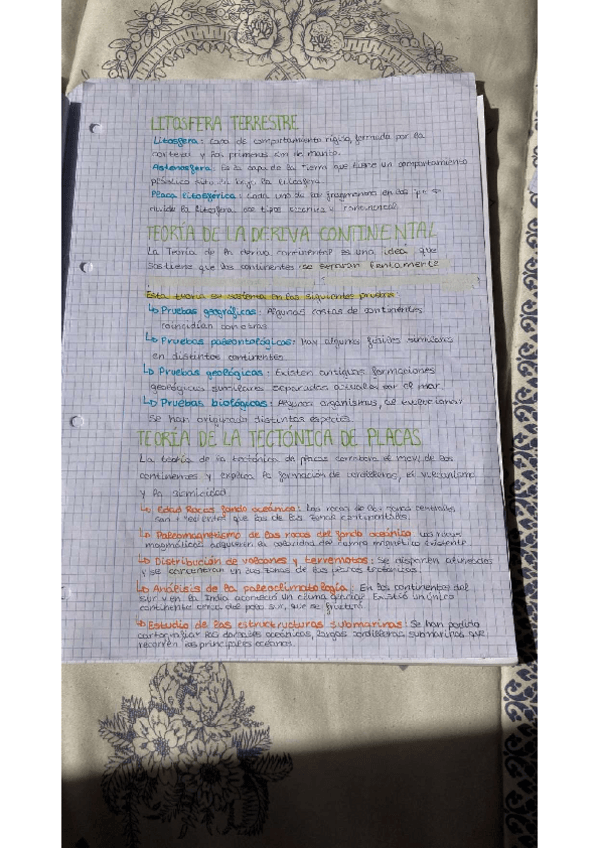 LITOSFERA TERRESTRE
Litosfera: capa de comportamiento rígido, formada por la
corteza y los primeros km de manto.
Astenosfera: Es la capa de la tierra que tiene un comportamiento
plástico bajo la litosfera.
Placa litosférica: Cada uno de los fragmentos en los que se
divide la litosfera. de tipos oceánica y continental.
TEORÍA DE LA DERIVA CONTINENTAL
La Teoría de la deriva continental es una idea que
sostiene que los continentes se separan lentamente
Esta teoría se sostenía en las siguientes pruebas
↳ Pruebas geográficas: Algunas costas de continentes
coincidían con otras
↳ Pruebas paleontológicas: hay algunos fósiles similares
en distintos continentes
↳ Pruebas geológicas: Existen antiguas formaciones
geológicas similares separadas actuales por el mar.
↳ Pruebas biológicas: Algunos organismos, al evolucionar
se han originado distintas especies.
TEORÍA DE LA TECTÓNICA DE PLACAS
La teoría de la tectónica de placas corrobora el mov. de los
continentes y explica la formación de cordilleras, el vulcanismo
y la sismicidad
↳ Edad Rocas fondo oceánico: Las rocas de las zonas centrales
son + recientes que las de las zonas continentales.
↳ Paleomagnetismo de las rocas del fondo oceánico: Las rocas
magmáticas adquieren la polaridad del campo magnético existente
↳ Distribución de volcanes y terremotos: Se disponen alineados
y se concentran en las zonas de las placas tectónicas.
↳ Análisis de la paleoclimatología: En los continentes del
sur y en la India aconteció un clima glaciar. Existió un único
continente cerca del polo sur, que se fracturó.
↳ Estudio de las estructuras submarinas: Se han podido
cartografiar las dorsales oceánicas, largas cordilleras submarinas que
recorren los principales océanos.